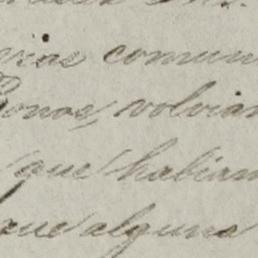 rias comun
Bonos, volvian
que habian
que alguna